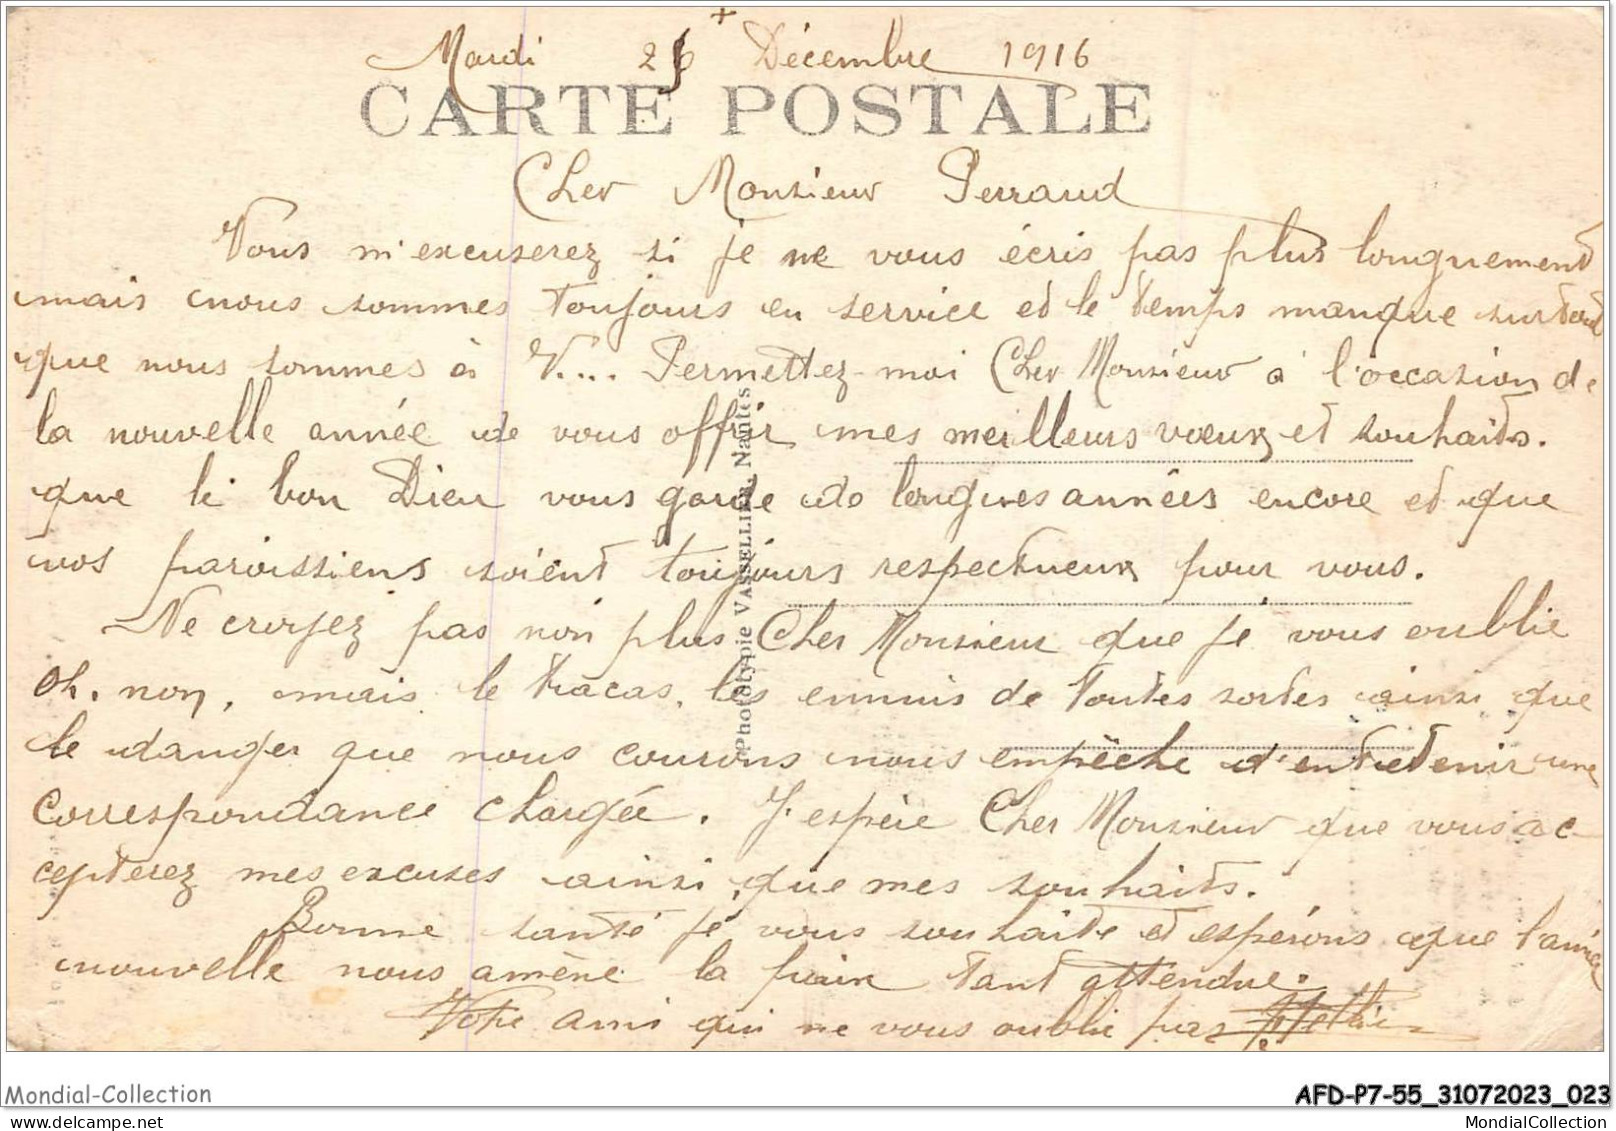 Mardi 26 Décembre 1916
CARTE POSTALE
Cher Monsieur Perraud
Vous m'excuserez si je ne vous écris pas plus longuement
mais nous sommes toujours en service et le temps manque surtout
que nous sommes à V.... Permettez-moi Cher Monsieur à l'occasion de
la nouvelle année de vous offrir mes meilleurs vœux et souhaits.
que le bon Dieu vous garde de longues années encore et que
vos paroissiens soient toujours respectueux pour vous.
Ne croyez pas non plus Cher Monsieur que je vous oublie
Oh. non, mais le tracas, les ennuis de toutes sortes ainsi que
le danger que nous courons nous empêche d'entretenir une
correspondance chargée. J'espère Cher Monsieur que vous ac-
cepterez mes excuses ainsi que mes souhaits.
Bonne santé je vous souhaite et espérons que l'année
nouvelle nous amène la paix tant attendue.
Votre ami qui ne vous oublie pas
Phototypie VASSELLIER, Nantes
Mondial-Collection
AFD-P7-55_31072023_023
mondial-collection
MondialCollection